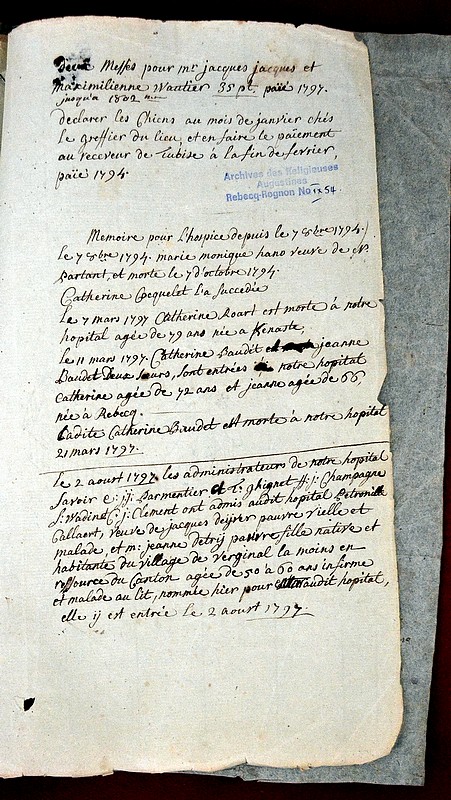 Deux Messes pour mr jacques jacques et
maximilienne Wautier 35 pt. païé 1797.
jusqu'a 1802
declarer les Chiens au mois de janvier chés
le greffier du lieu et en faire le païement
au receveur de Tubise à la fin de fevrier,
païé 1794.
Archives des Religieuses
Augustines
Rebecq-Rognon No IX 54.
Memoire pour l'hospice depuis le 7 8bre 1794.
Le 7 8bre 1794. marie monique hano veuve de N.
Partant, et morte le 7 d'octobre 1794.
Catherine Coequelet l'a succedée
Le 7 mars 1797 Catherine Roart est morte à notre
hopital agée de 79 ans née a Kenaste,
le 11 mars 1797. Catherine Baudet et jeanne
Baudet Deux Sœurs, sont entrées à notre hopital
Catherine agée de 72 ans et jeanne agée de 66,
née à Rebecq.
Ladite Catherine Baudet est morte à notre hopital
21 mars 1797.
Le 2 aoust 1797 les administrateurs de notre hopital
Savoir C: j: j: Parmentier et T: ghignet ff: j: Champagne
f: Wadin et C: j: Clement ont admis audit hopital Petronille
Callaert, veuve de jacques deijver pauvre vielle et
malade, et m: jeanne Detrij pauvre fille native et
habitante du village de verginal la moins en
ressource du Canton agée de 50 à 60 ans infirme
et malade au lit, nommée hier pour audit hopital,
elle ij est entrée le 2 aoust 1797